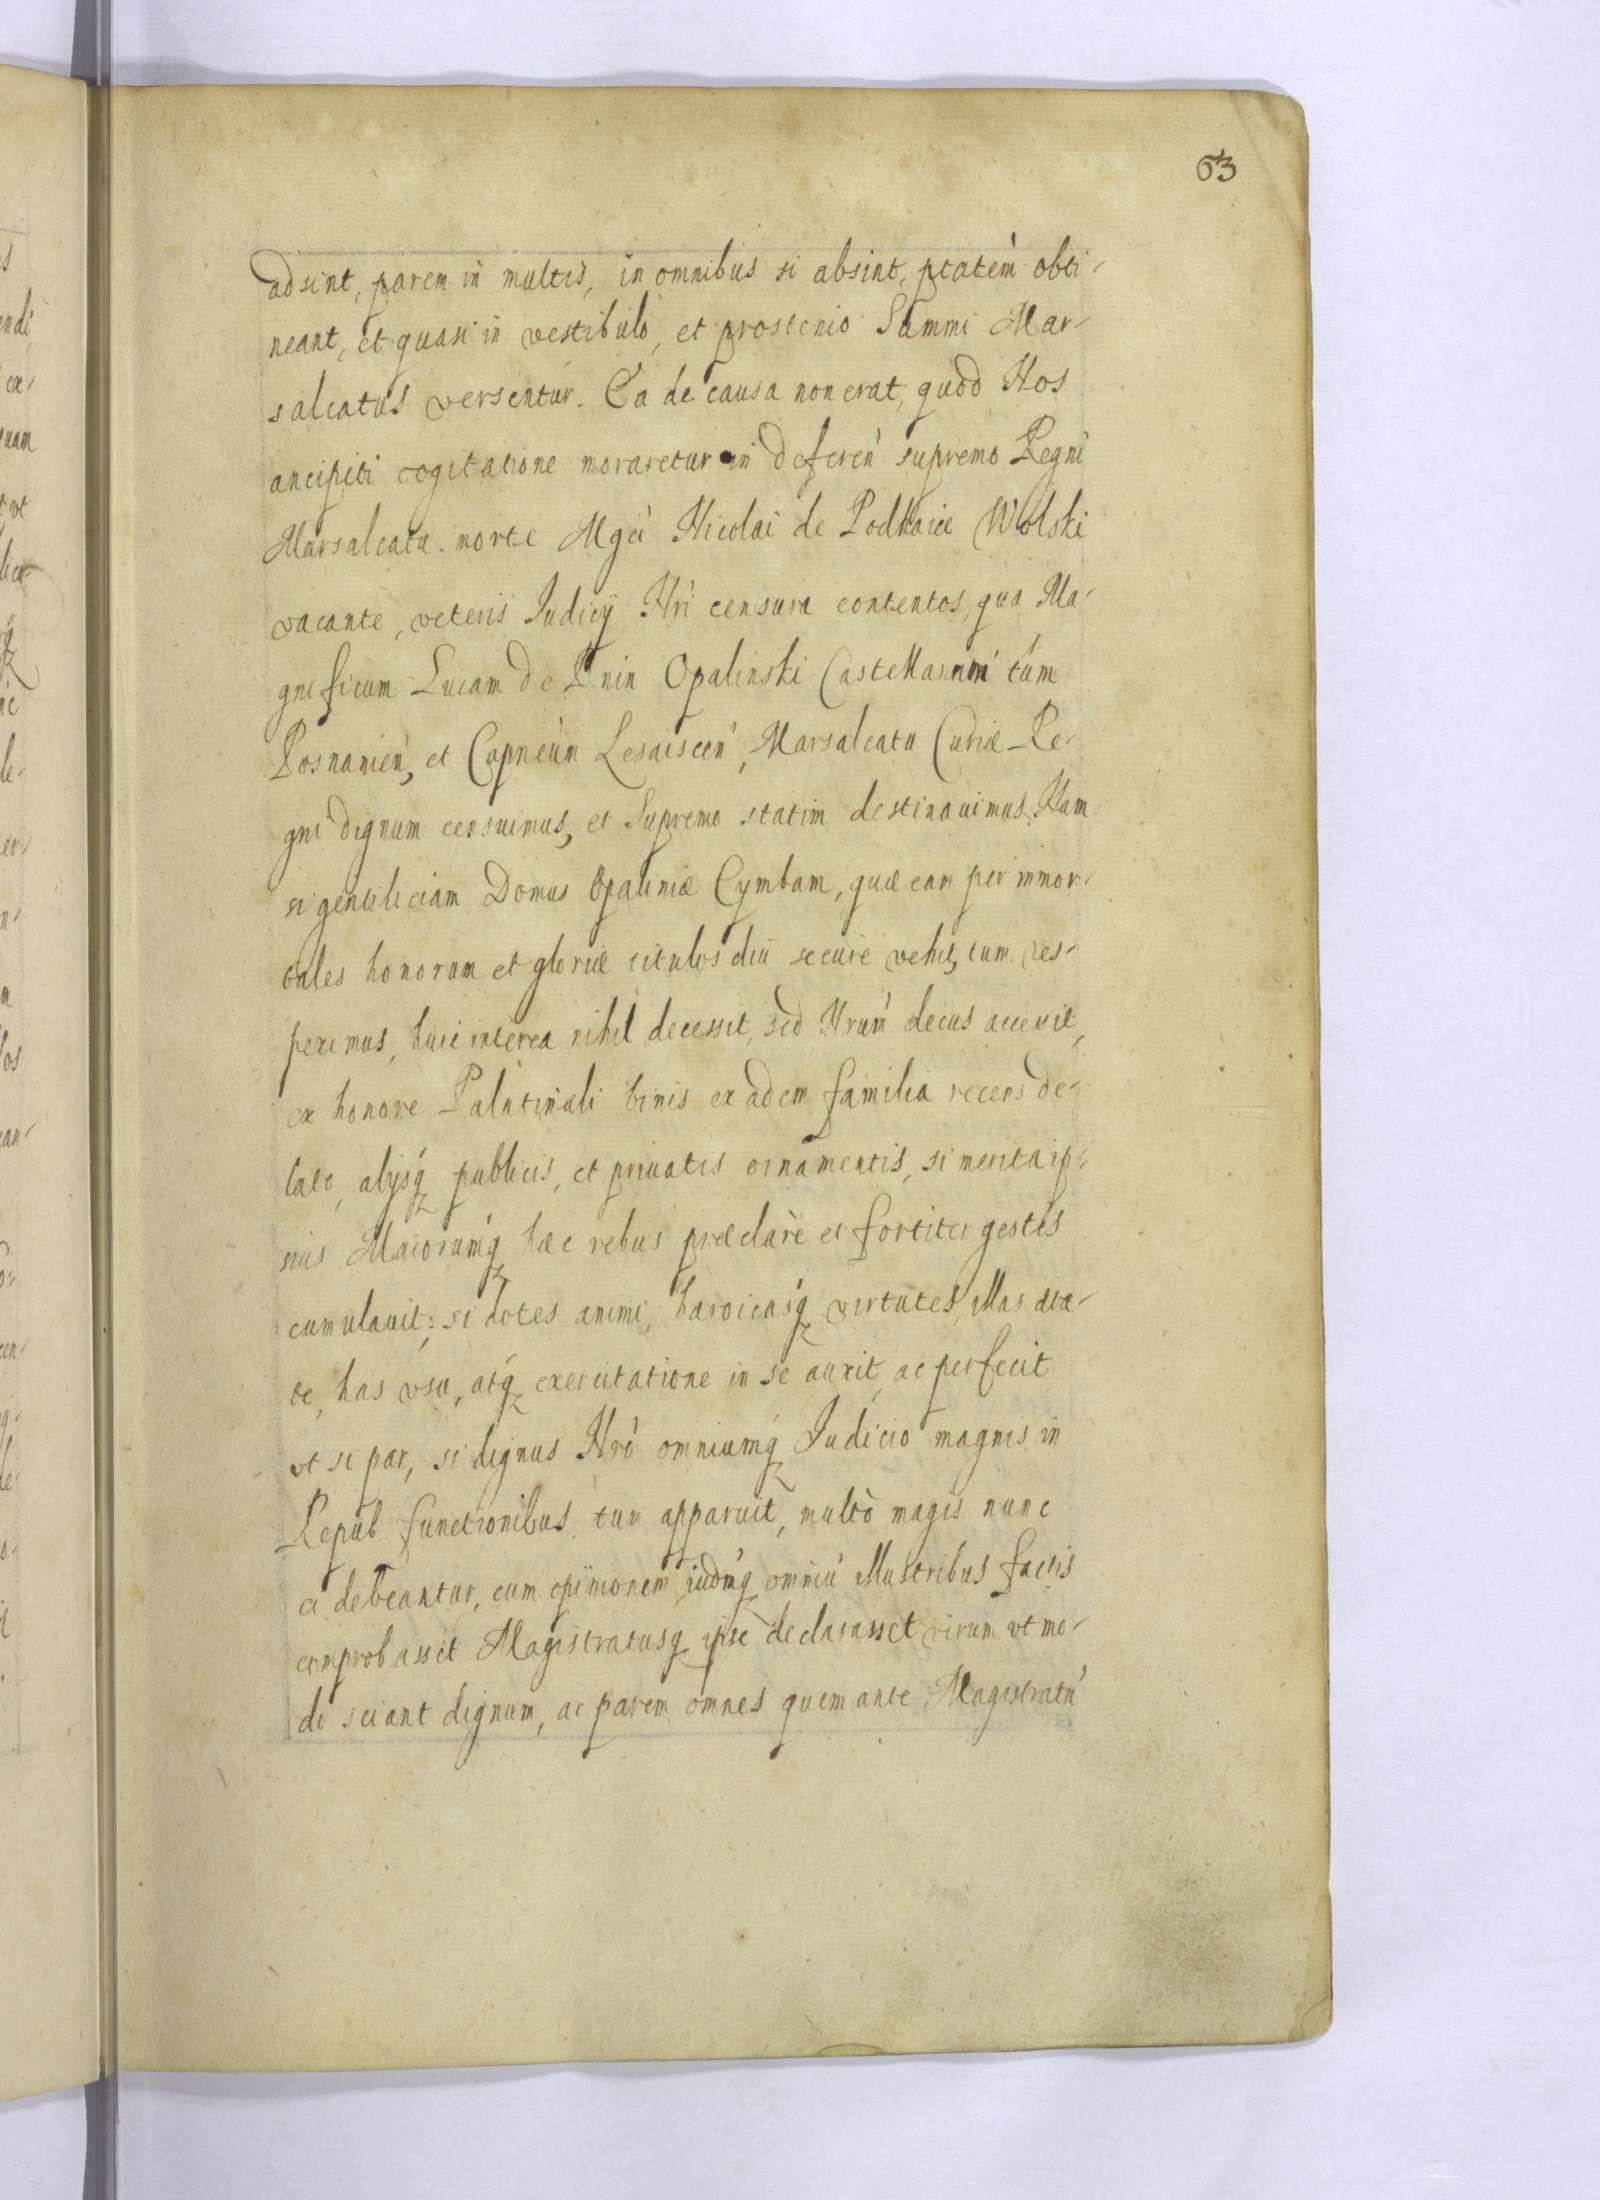 63
adsint, parem in multis, in omnibus si absint, ptatem obti-
neant, et quasi in vestibulo, et prostenio Summi Mar-
salcatus versentur. Ea de causa non erat, quod Nos
ancipiti cogitatione moraretur in deferen supremo Regni
Marsalcatu morte Mgci Nicolai de Podhaice Wolski
vacante, veteris Judicij Nri censura contentos, qua Ma-
gnificum Lucam de Bnin Opalinski Castellanum tum
Posnanien, et Capneum Lesaiscen, Marsalcatu Curiæ Re-
gni dignum censuimus, et Supremo statim destinauimus. Nam
si gentiliciam Domus Opaliniæ Cymbam, quæ eam per immor-
tales honorum et gloriæ titulos diu secure vehit, tum res-
peximus, huic interea nihil decessit, sed Nrum decus accessit,
ex honore Palatinali binis ex adem familia recens de-
lato, alijsq publicis, et priuatis ornamentis, si merita ip-
sius Maiorumq hæc rebus præclare et fortiter gestis
cumulauit; si dotes animi, haroicasq virtutes, illas æta-
te, has vsu, atq exercitatione in se auxit, ac perfecit
vt si par, si dignus Nro omniumq Judicio magnis in
Repub functionibus tum apparuit, multò magis nunc
ei debeantur, cum opinionem iudmq omniu illustribus factis
comprobasset Magistratusq ipse declarasset virum vt mo-
do sciant dignum, ac parem omnes quem ante Magistratu